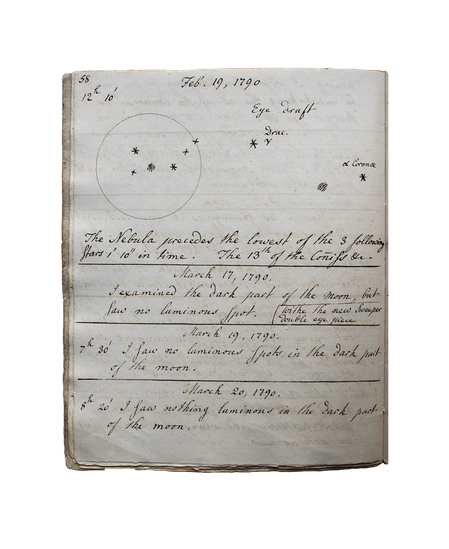 58
Feb. 19, 1790
12h 10'
Eye draft
Drac.
γ
α Coronæ
The Nebula precedes the lowest of the 3 following
stars 1' 10" in time. The 13th of the Conoiss &c.
March 17, 1790.
I examined the dark part of the moon, but
saw no luminous spot. withe the new Sweeper
double eye piece
March 19, 1790.
7h 30' I saw no luminous spots in the dark part
of the moon.
March 20, 1790.
8h 20' I saw nothing luminous in the dark part
of the moon.